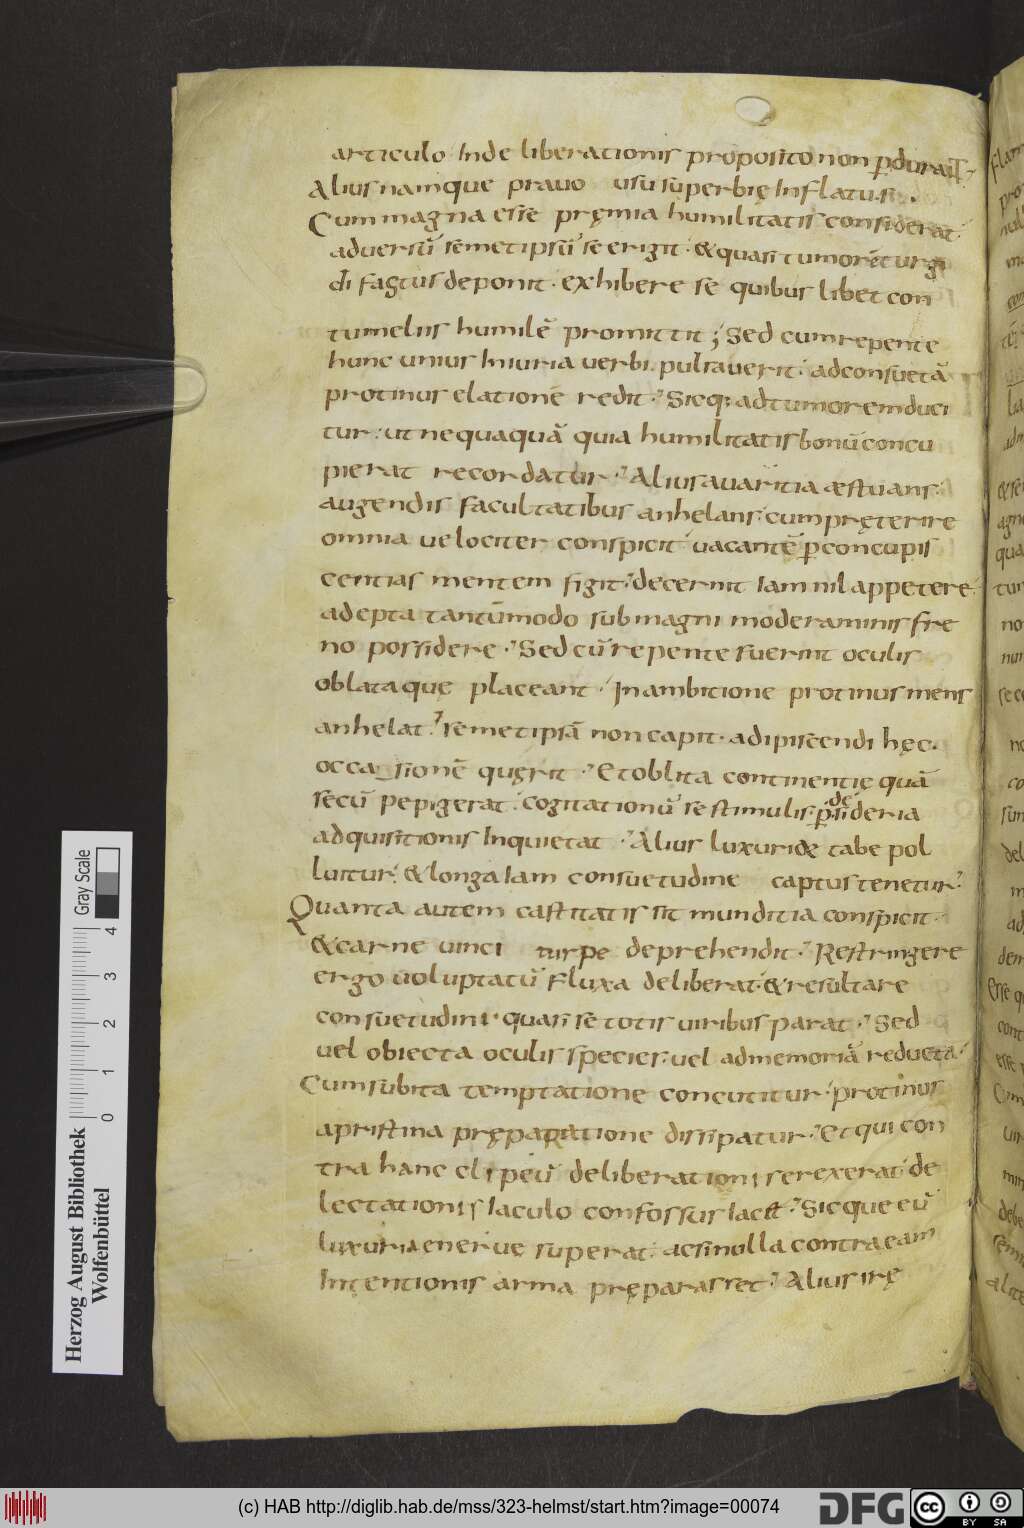 articulo Inde liberationis proposito non ꝑdurat
Alius namque prauo usu superbię Inflatus
Cum magna esse pręmia humilitatis considerat
aduersū semetipsū se erigit · & quasi tumorē turgi
di fastus deponit · exhibere se quibus libet con
tumeliis humilē promittit ; Sed cum repente
hunc unius Iniuria uerbi pulsauerit · ad consuetā
protinus elationē redit · Sicq; ad tumorem duci
tur · ut nequaquā quia humilitatis bonū concu
pierat recordatur · Alius auaritia æstuans
augendis facultatibus anhelans · cum pręterire
omnia uelociter conspicit uacantē ꝑ concupis
centias mentem figit · decernit Iam nil appetere
adepta tantūmodo sub magni moderaminis fre
no possidere · Sed cū repente fuerint oculis
oblata que placeant · In ambitione protinus mens
anhelat · semetipsā non capit · adipiscendi hęc
occasionē quęrit · Et oblita continentię quā
secū pepigerat · cogitationū se stimulis ꝑ desideria
adquisitionis Inquietat · Alius luxuriæ tabe pol
luitur · & longa Iam consuetudine captus tenetur ·
Quanta autem castitatis sit munditia conspicit ·
& carne uinci turpe deprehendit · Restringere
ergo uoluptatū fluxa deliberat · & resultare
consuetudini · quasi se totis uiribus parat · Sed
uel obiecta oculis species · uel ad memoriā reducta ·
Cum subita temptatione concutitur · protinus
a pristina pręparatione dissipatur · Et qui con
tra hanc clipeū deliberationis erexerat · de
lectationis Iaculo confossus Iacet · Sicque eū
luxuria eneruę superat · ac si nulla contra eam
Intentionis arma pręparasset · Alius irę
Herzog August Bibliothek
Wolfenbüttel
Gray Scale
0 1 2 3 4
(c) HAB http://diglib.hab.de/mss/323-helmst/start.htm?image=00074
DFG
cc
BY SA